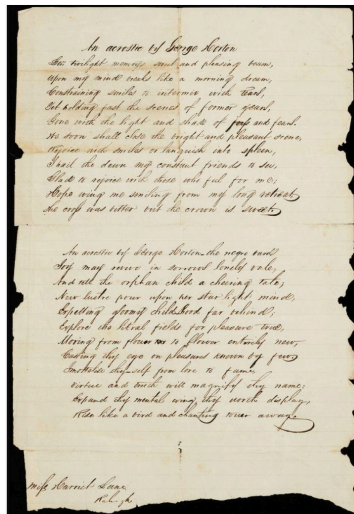 An acrostic by George Horton
upon my mind breaks like a morning dream,
Constraining smiles to intermix with tears,
Yet holding fast the scenes of former years,
Gone with the light and shade of joys and fears.
We soon shall close the bright and pleasant scene,
Rejoice with smiles or languish into spleen,
I hail the dawn my constant friends to see,
Glad to rejoice with those who feel for me,
Hope wing me smiling from my long retreat
The cross was bitter but the crown is sweet
An acrostic by George Horton the negro bard
Joy may revive in sorrows lonely vale,
And tell the orphan child a cheering tale,
New lustre pour upon her star light mind,
Expelling gloomy childhood far behind;
Explore the literal fields for pleasure true,
Moving from flower to flower entirely new,
thy eye on pleasures known by few
thy self from love to fame,
virtue and truth will magnify thy name,
Expand thy mental wing, thy worth display,
Rise like a bird and chanting tower away
Miss Harriet
Raleigh